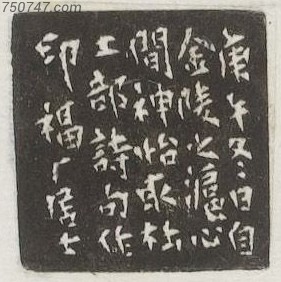 750747.com
庚午冬日自
金陵之滬心
閒神怡取杜
工部詩句作
印福厂居士